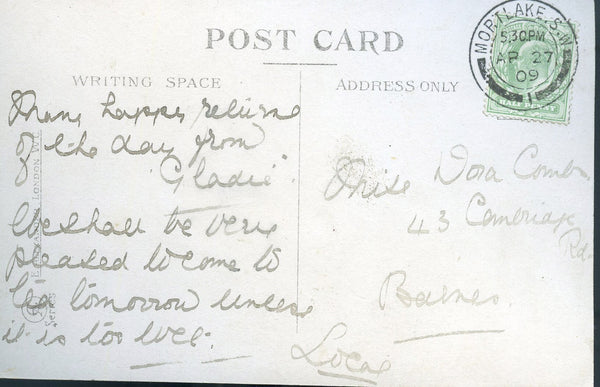 POST CARD
WRITING SPACE
ADDRESS ONLY
MORTLAKE. S.W
5.30PM
AP 27
09
1
Many happy returns
of the day from
"Gladie".
We shall be very
pleased to come to
tea tomorrow unless
it is too wet.
Miss Dora Combe
43 Cambridge
Rd.
Barnes.
Local
LONDON W.
Series